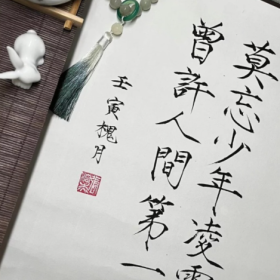 莫忘少年凌
曾許人間第一
壬寅槐月